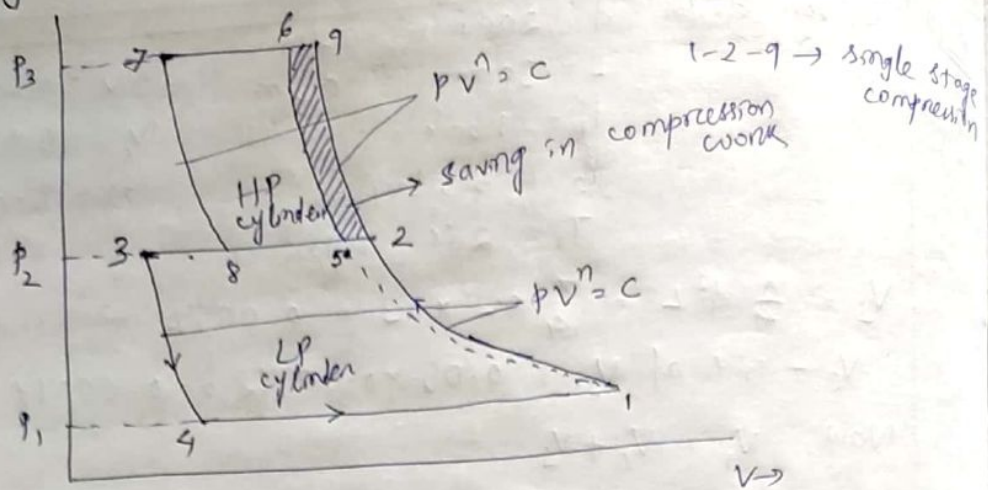 6 9
p₃ 7
pvⁿ = C
1-2-9 → single stage
compression
saving in compression
work
HP
cylinder
p₂ 3 8 5 2
pvⁿ = C
LP
cylinder
p₁ 4 1
V→